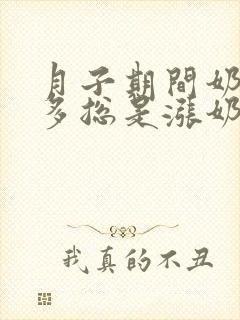 月子期間奶
多總是漲奶
我真的不丑